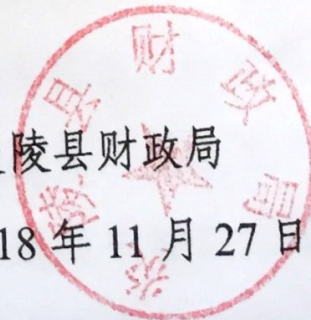 陵县财政局
18年11月27日
陵县财政局